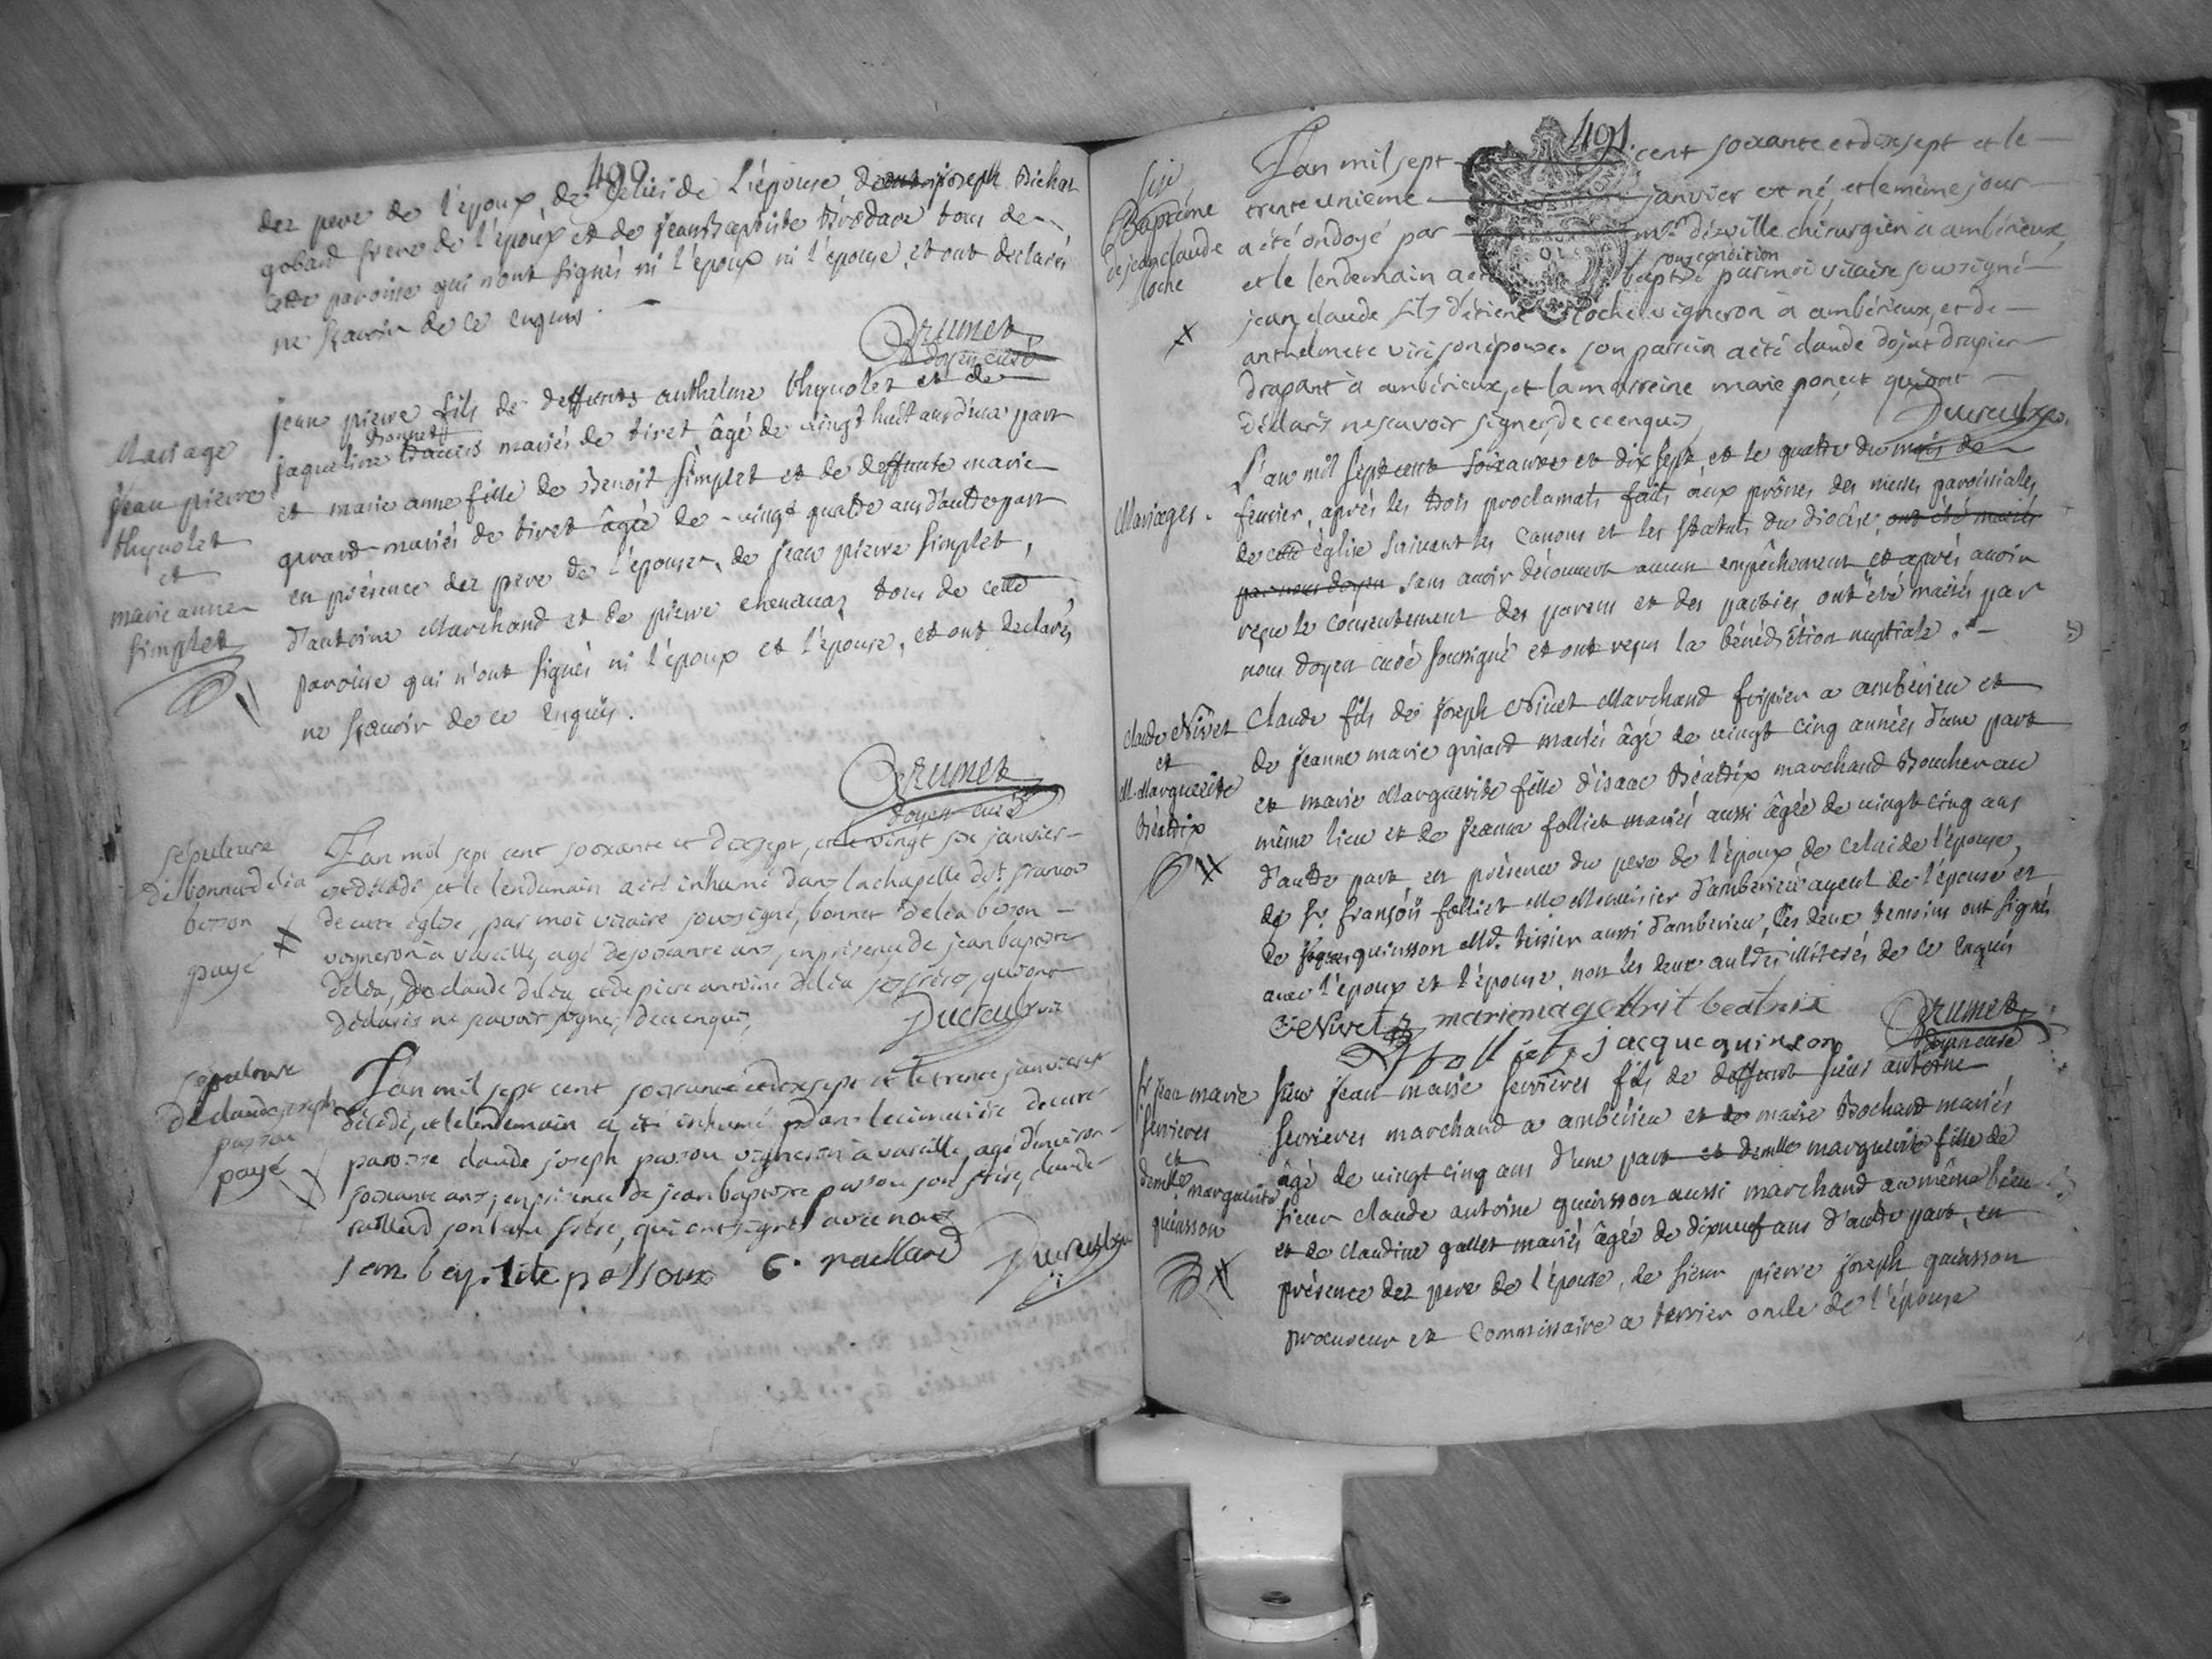 490
des pere de l'epoux, de celui de l'épouse, joseph Bichat
gobard frere de l'époux et de jean Baptiste tous de
cette paroisse qui n'ont signés ni l'époux ni l'épouse, et ont declarés
ne scavoir de ce enquis.
Grumet
doyen curé
Mariage
jean pierre
thynolet
et
marie anne
simplet
jean pierre fils de deffunts anthelme thynolet et de
jaqueline bonnet mariés de tiret âgé de vingt huit ans d'une part
et marie anne fille de Benoit simplet et de deffunte marie
quvard mariés de tiret âgée de vingt quatre ans d'autre part
en présence des pere de l'épouse, de jean pierre simplet,
d'antoine Marchand et de pierre chenavaz tous de cette
paroisse qui n'ont signés ni l'époux et l'épouse, et ont declarés
ne scavoir de ce enquis.
Grumet
doyen curé
sépulture
de bonnet delia
bozon
payé
L'an mil sept cent soixante et dixsept, et le vingt six janvier
est décédé et le lendemain a été inhumé dans la chapelle de st françois
de cette église, par moi vicaire soussigné, bonnet delia bozon
vigneron à vareille, agé de soixante ans, en présence de jean baptiste
delia, de claude delia et de pierre antoine delia ses freres, qui ont
déclarés ne savoir signer, de ce enquis,
Ducreulx vic
sépulture
de claude joseph
possou
payé
L'an mil sept cent soixante et dixsept et le trente janvier est
décédé, et le lendemain a été inhumé dans le cimetiere de cette
paroisse claude joseph possou vigneron à vareille, agé d'environ
soixante ans, en présence de jean baptiste possou son frere, claude
raillard son beau frere, qui ont signés avec nous
jean baptite possoux C. raillard Ducreulx
491
Baptême
de jean claude
roche
L'an mil sept cent soixante et dix sept et le
trente unieme janvier est né, et le même jour
a été ondoyé par mr. déville chirurgien à ambérieux,
et le lendemain a été baptisé sous condition par moi vicaire soussigné
jean claude fils d'étiene Roche vigneron à ambérieux, et de
anthelmete viri son épouse. son parrein a été claude dojat drapier
drapant à ambérieux, et la marreine marie ponçet qui ont
déclarés ne scavoir signer, de ce enquis,
Ducreulx
Mariages.
L'an mil sept cent soixante et dix sept, et le quatre du mois de
fevrier, après les trois proclamats faits aux prônes des messes paroissiales
de cette église suivant les canons et les statuts du diocèse, ont été mariés
par nous doyen sans avoir découvert aucun empêchement et après avoir
reçu le consentement des parens et des parties ont été mariés par
nous doyen curé soussigné et ont reçus la bénédiction nuptiale.
claude Nivet
et
M. Marguerite
Béatrix
Claude fils de joseph Nivet Marchand fripier a amberieu et
de jeanne marie guisard mariés âgé de vingt cinq années d'une part
et marie Marguerite fille d'isaac Béatrix marchand Boucher au
même lieu et de jeanne folliet mariés aussi âgée de vingt cinq ans
d'autre part en présence du pere de l'époux de celui de l'épouse,
de sr. françois folliet Me Menuisier d'amberieu ayeul de l'épouse et
de jaques quinsson Md. tissier aussi d'amberieu, Les deux temoins ont signés
avec l'époux et l'épouse, non les deux autres illiterés de ce enquis
C Nivet marie magdtrit beatrix Grumet
folliet, jacque quinson doyen curé
sr jean marie
serrieres
et
demlle marguerite
quinsson
sieur jean marie serrières fils de deffunt sieur antoine
serrieres marchand a ambérieu et de marie Bochard mariés
âgé de vingt cinq ans d'une part et demlle marguerite fille de
sieur claude antoine quinsson aussi marchand au même lieu
et de claudine gallet mariés âgée de dixneuf ans d'autre part, en
présence des pere de l'épouse, de sieur pierre joseph quinsson
procureur et commissaire a terrier oncle de l'épouse